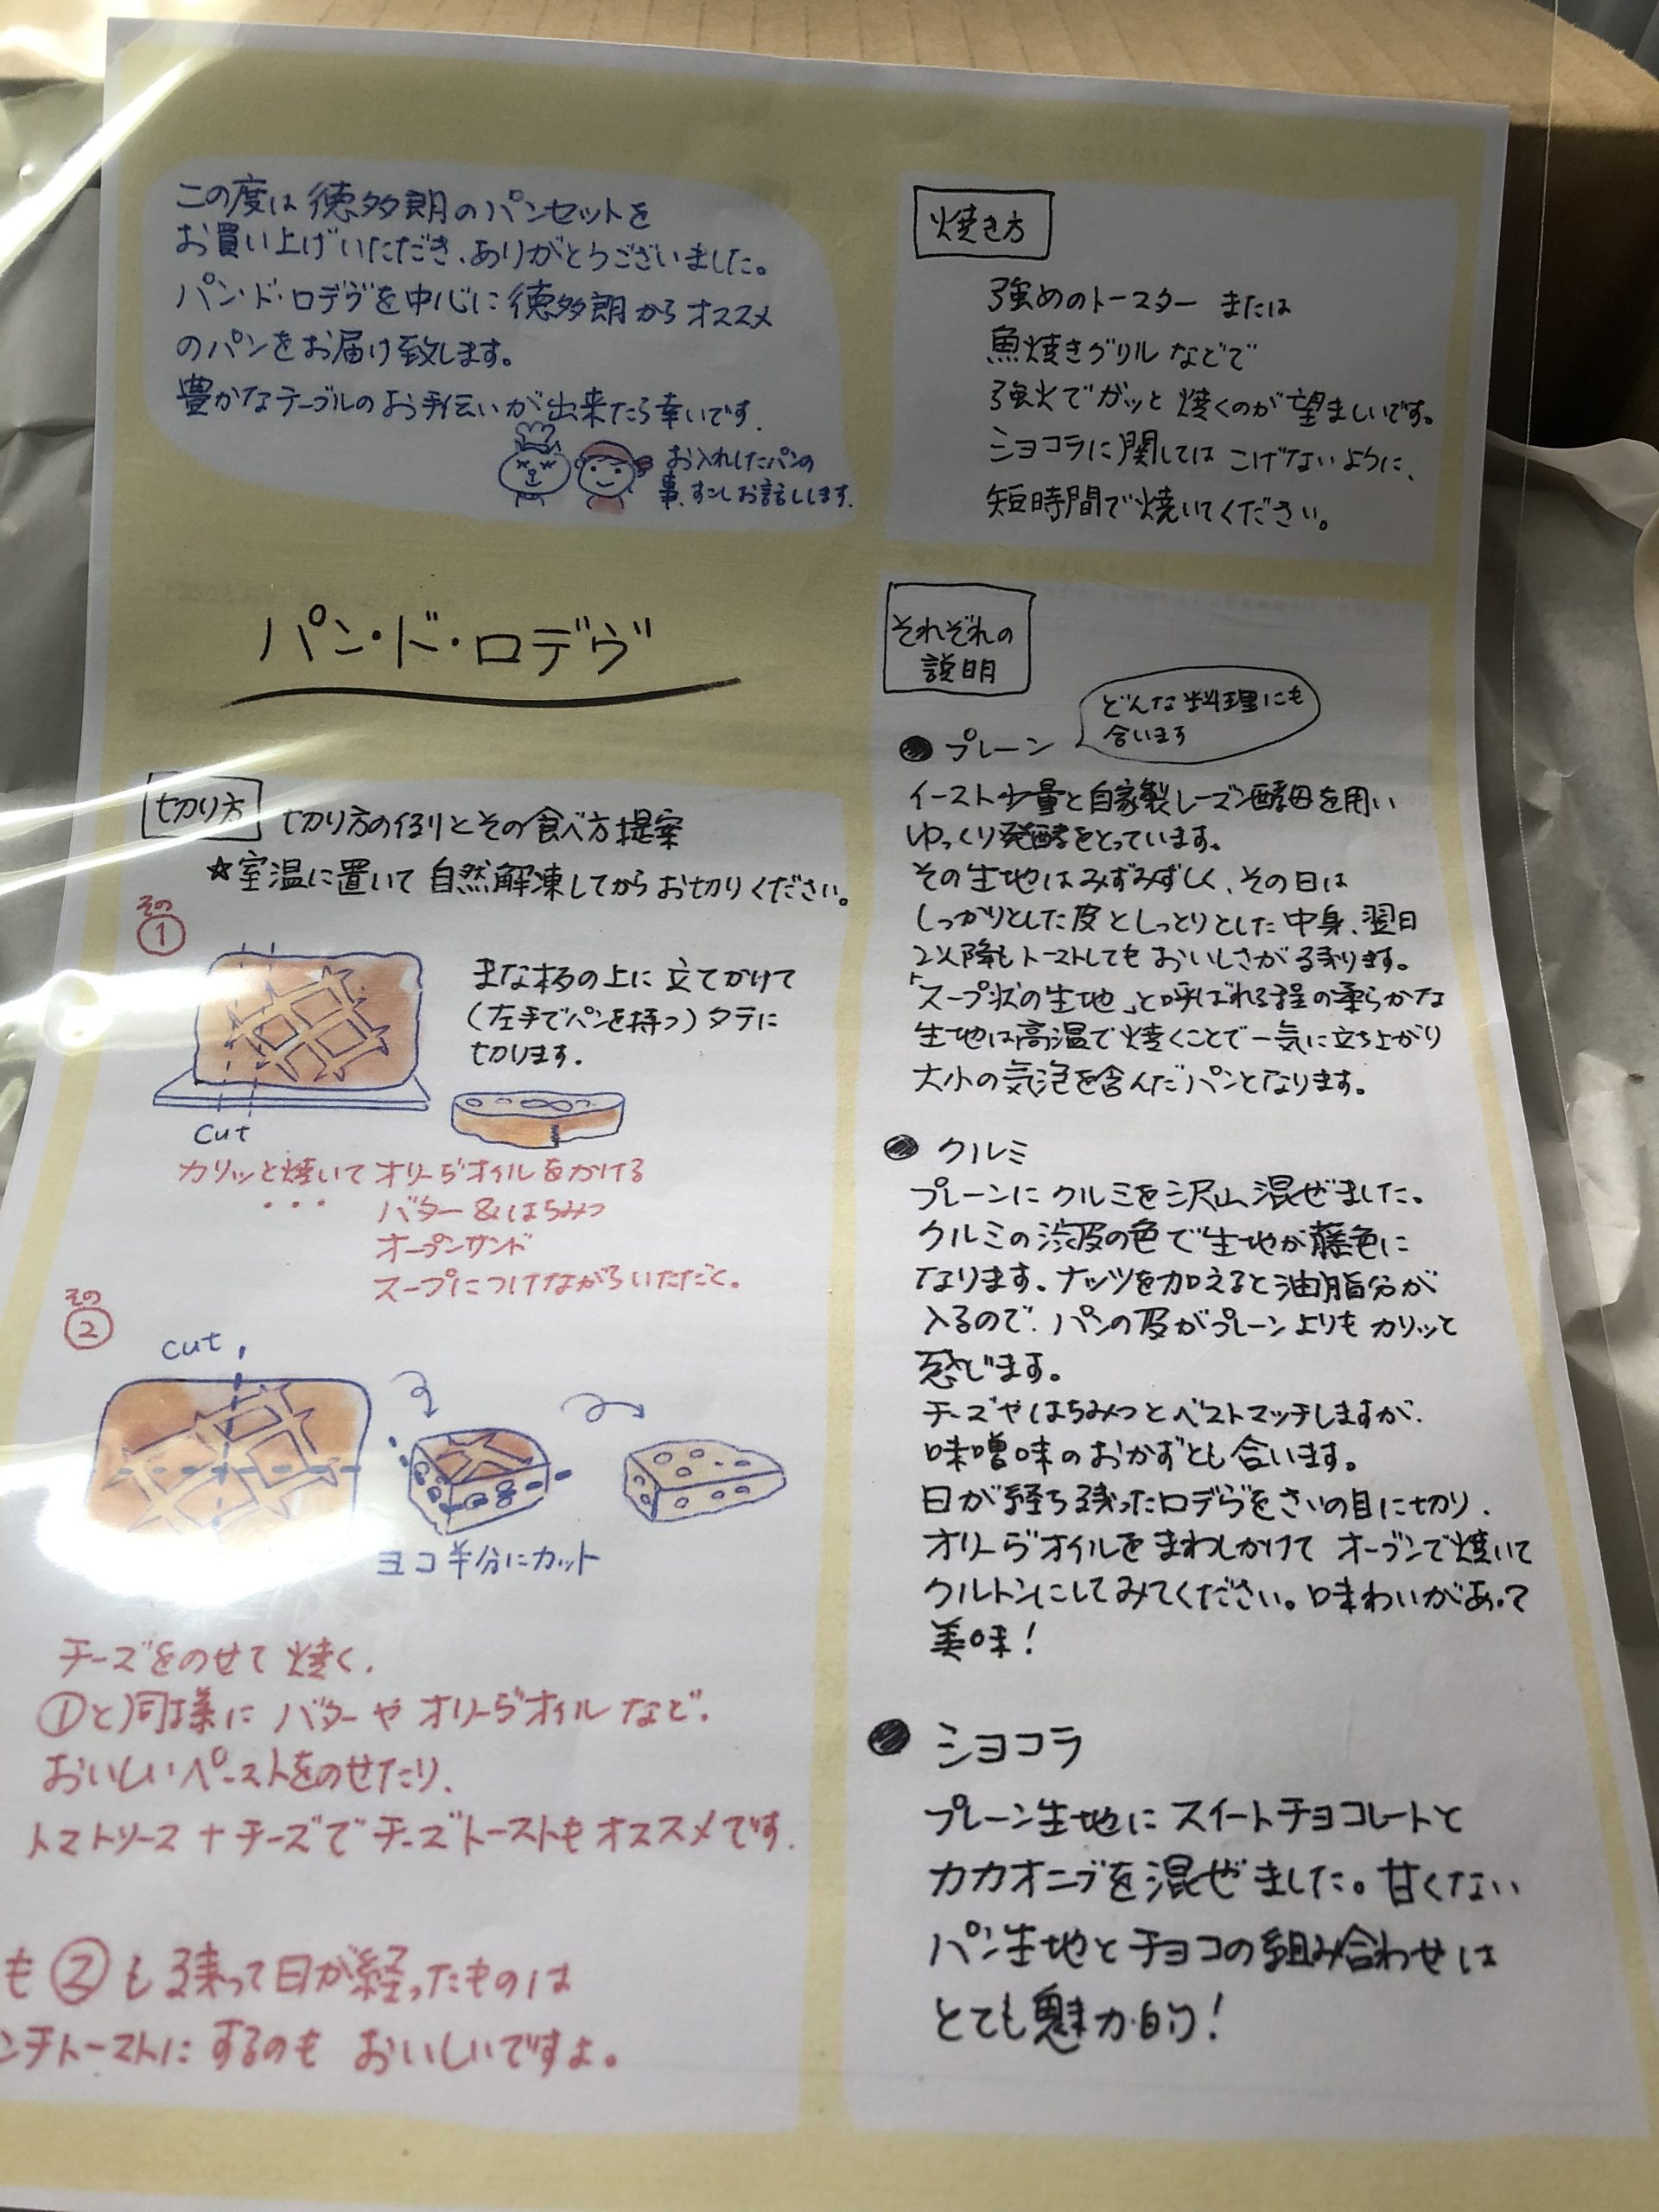 この度は徳多朗のパンセットを
お買い上げいただき、ありがとうございました。
パン・ド・ロデヴを中心に徳多朗からオススメ
のパンをお届け致します。
豊かなテーブルのお手伝いが出来たら幸いです.
お入れしたパンの
事、すこしお話しします.
パン・ド・ロデヴ
切り方 切り方の例とその食べ方提案
☆室温に置いて自然解凍してからお切りください。
その
①
まな板の上に立てかけて
(左手でパンを持つ)タテに
切ります.
cut
カリッと焼いて オリーヴオイルをかける
・・・ バター&はちみつ
オープンサンド
スープにつけながらいただく。
その
②
cut
ヨコ半分にカット
チーズをのせて焼く.
①と同様に バターや オリーヴオイルなど.
おいしいペーストをのせたり、
トマトソース+チーズでチーズトーストもオススメです.
も②も残って日が経ったものは
ンチトーストにするのも おいしいですよ。
焼き方
強めのトースター または
魚焼きグリルなどで
強火でガッと焼くのが望ましいです。
ショコラに関しては こげないように、
短時間で焼いてください。
それぞれの
説明
● プレーン
どんな料理にも
合います
イースト少量と自家製レーズン酵母を用い
ゆっくり発酵をとっています。
その生地はみずみずしく、その日は
しっかりとした皮としっとりとした中身、翌日
以降もトーストしてもおいしさが残ります。
「スープ状の生地」と呼ばれる程の柔らかな
生地は高温で焼くことで一気に立ち上がり
大小の気泡を含んだパンとなります。
● クルミ
プレーンにクルミを沢山混ぜました。
クルミの渋皮の色で生地が藤色に
なります。ナッツを加えると油脂分が
入るので、パンの皮がプレーンよりもカリッと
感じます。
チーズやはちみつとベストマッチしますが、
味噌味のおかずとも合います。
日が経ち残ったロデヴをさいの目に切り、
オリーヴオイルをまわしかけて オーブンで焼いて
クルトンにしてみてください。味わいがあって
美味!
● ショコラ
プレーン生地に スイートチョコレートと
カカオニブを混ぜました。甘くない
パン生地とチョコの組み合わせは
とても魅力的!